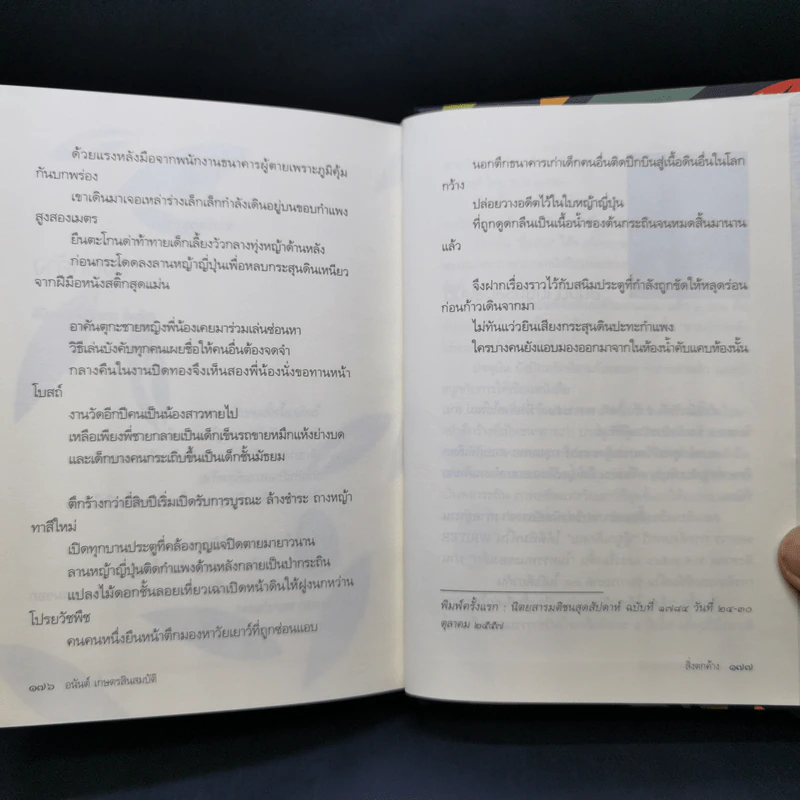 ด้วยแรงหลังมือจากพนักงานธนาคารผู้ตายเพราะภูมิคุ้ม
กันบกพร่อง
เขาเดินมาเจอเหล่าร่างเล็กเล็กกำลังเดินอยู่บนขอบกำแพง
สูงสองเมตร
ยืนตะโกนด่าท้าทายเด็กเลี้ยงวัวกลางทุ่งหญ้าด้านหลัง
ก่อนกระโดดลงลานหญ้าญี่ปุ่นเพื่อหลบกระสุนดินเหนียว
จากฝีมือหนังสติ๊กสุดแม่น
อาคันตุกะชายหญิงพี่น้องเคยมาร่วมเล่นซ่อนหา
วิธีเล่นบังคับทุกคนเผยชื่อให้คนอื่นต้องจดจำ
กลางคืนในงานปิดทองจึงเห็นสองพี่น้องนั่งขอทานหน้า
โบสถ์
งานวัดอีกปีคนเป็นน้องสาวหายไป
เหลือเพียงพี่ชายกลายเป็นเด็กเข็นรถขายหมึกแห้งย่างบด
และเด็กบางคนกระเถิบขึ้นเป็นเด็กชั้นมัธยม
ตึกร้างกว่ายี่สิบปีเริ่มเปิดรับการบูรณะ ล้างชำระ ถางหญ้า
ทาสีใหม่
เปิดทุกบานประตูที่คล้องกุญแจปิดตายมายาวนาน
ลานหญ้าญี่ปุ่นติดกำแพงด้านหลังกลายเป็นป่ากระถิน
แปลงไม้ดอกชั้นลอยเที่ยวเฉาเปิดหน้าดินให้ฝูงนกหว่าน
โปรยวัชพืช
คนคนหนึ่งยืนหน้าตึกมองหาวัยเยาว์ที่ถูกซ่อนแอบ
๑๗๖ อนันต์ เกษตรสินสมบัติ
นอกตึกธนาคารเก่าเด็กคนอื่นติดปีกบินสู่เนื้อดินอื่นในโลก
กว้าง
ปล่อยวางอดีตไว้ในใบหญ้าญี่ปุ่น
ที่ถูกดูดกลืนเป็นเนื้อน้ำของต้นกระถินจนหมดสิ้นมานาน
แล้ว
จึงฝากเรื่องราวไว้กับสนิมประตูที่กำลังถูกขัดให้หลุดร่อน
ก่อนก้าวเดินจากมา
ไม่ทันแว่วยินเสียงกระสุนดินปะทะกำแพง
ใครบางคนยังแอบมองออกมาจากในห้องน้ำคับแคบห้องนั้น
พิมพ์ครั้งแรก : นิตยสารมติชนสุดสัปดาห์ ฉบับที่ ๑๗๘๔ วันที่ ๒๔-๓๐
ตุลาคม ๒๕๕๗
สิ่งตกค้าง ๑๗๗